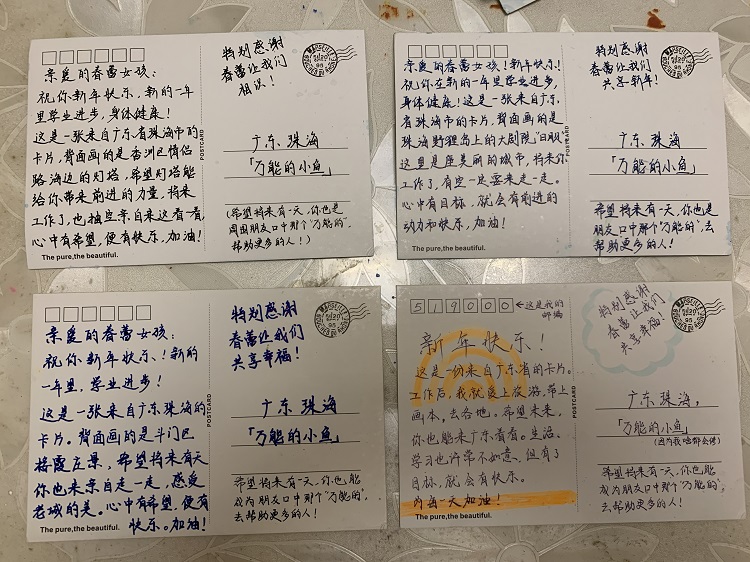 亲爱的春蕾女孩：
祝你新年快乐，新的一年
里学业进步，身体健康！
这是一张来自广东省珠海市的
卡片，背面画的是香洲区情侣
路海边的灯塔，希望灯塔能
给你带来前进的力量，将来
工作了，也抽空亲自来这看一看，
心中有希望，便有快乐，加油！
The pure,the beautiful.
POSTCARD
特别感谢
春蕾让我们
相识！
广东 珠海
「万能的小鱼」
(希望将来有一天，你也是
周围朋友口中那个“万能的”，
帮助更多的人！)
亲爱的春蕾女孩！新年快乐！
祝你在新的一年里学业进步，
身体健康！这是一张来自广东
省珠海市的卡片，背面画的是
珠海野狸岛上的大剧院“日月”。
这里是座美丽的城市，将来你
工作了，有空一定要来走一走。
心中有目标，就会有前进的
动力和快乐，加油！
The pure,the beautiful.
POSTCARD
特别感谢
春蕾让我们
共享新年！
广东 珠海
「万能的小鱼」
希望将来有一天，你也是
朋友口中那个“万能的”，去
帮助更多的人！
亲爱的春蕾女孩：
祝你新年快乐！新的
一年里，学业进步！
这是一张来自广东珠海的
卡片。背面画的是斗门区
接霞庄景，希望将来有天
你也来亲自走一走，感受
老城的美。心中有希望，便有
快乐。加油！
The pure,the beautiful.
POSTCARD
特别感谢
春蕾让我们
共享幸福！
广东 珠海
「万能的小鱼」
希望将来有一天，你也能
成为朋友口中那个“万能的”，
去帮助更多的人！
519000 ←这是我的
邮编
新年快乐！
这是一份来自广东省的卡片。
工作后，我就爱上旅游，带上
画本，去各地。希望未来，
你也能来广东看看。生活、
学习也许常不如意，但有了
目标，就会有快乐。
为每一天加油！
The pure,the beautiful.
POSTCARD
特别感谢
春蕾让我们
共享幸福！
广东 珠海，
「万能的小鱼」
(因为我啥都会修)
希望将来有一天，你也能
成为朋友口中那个“万能的”，
去帮助更多的人！